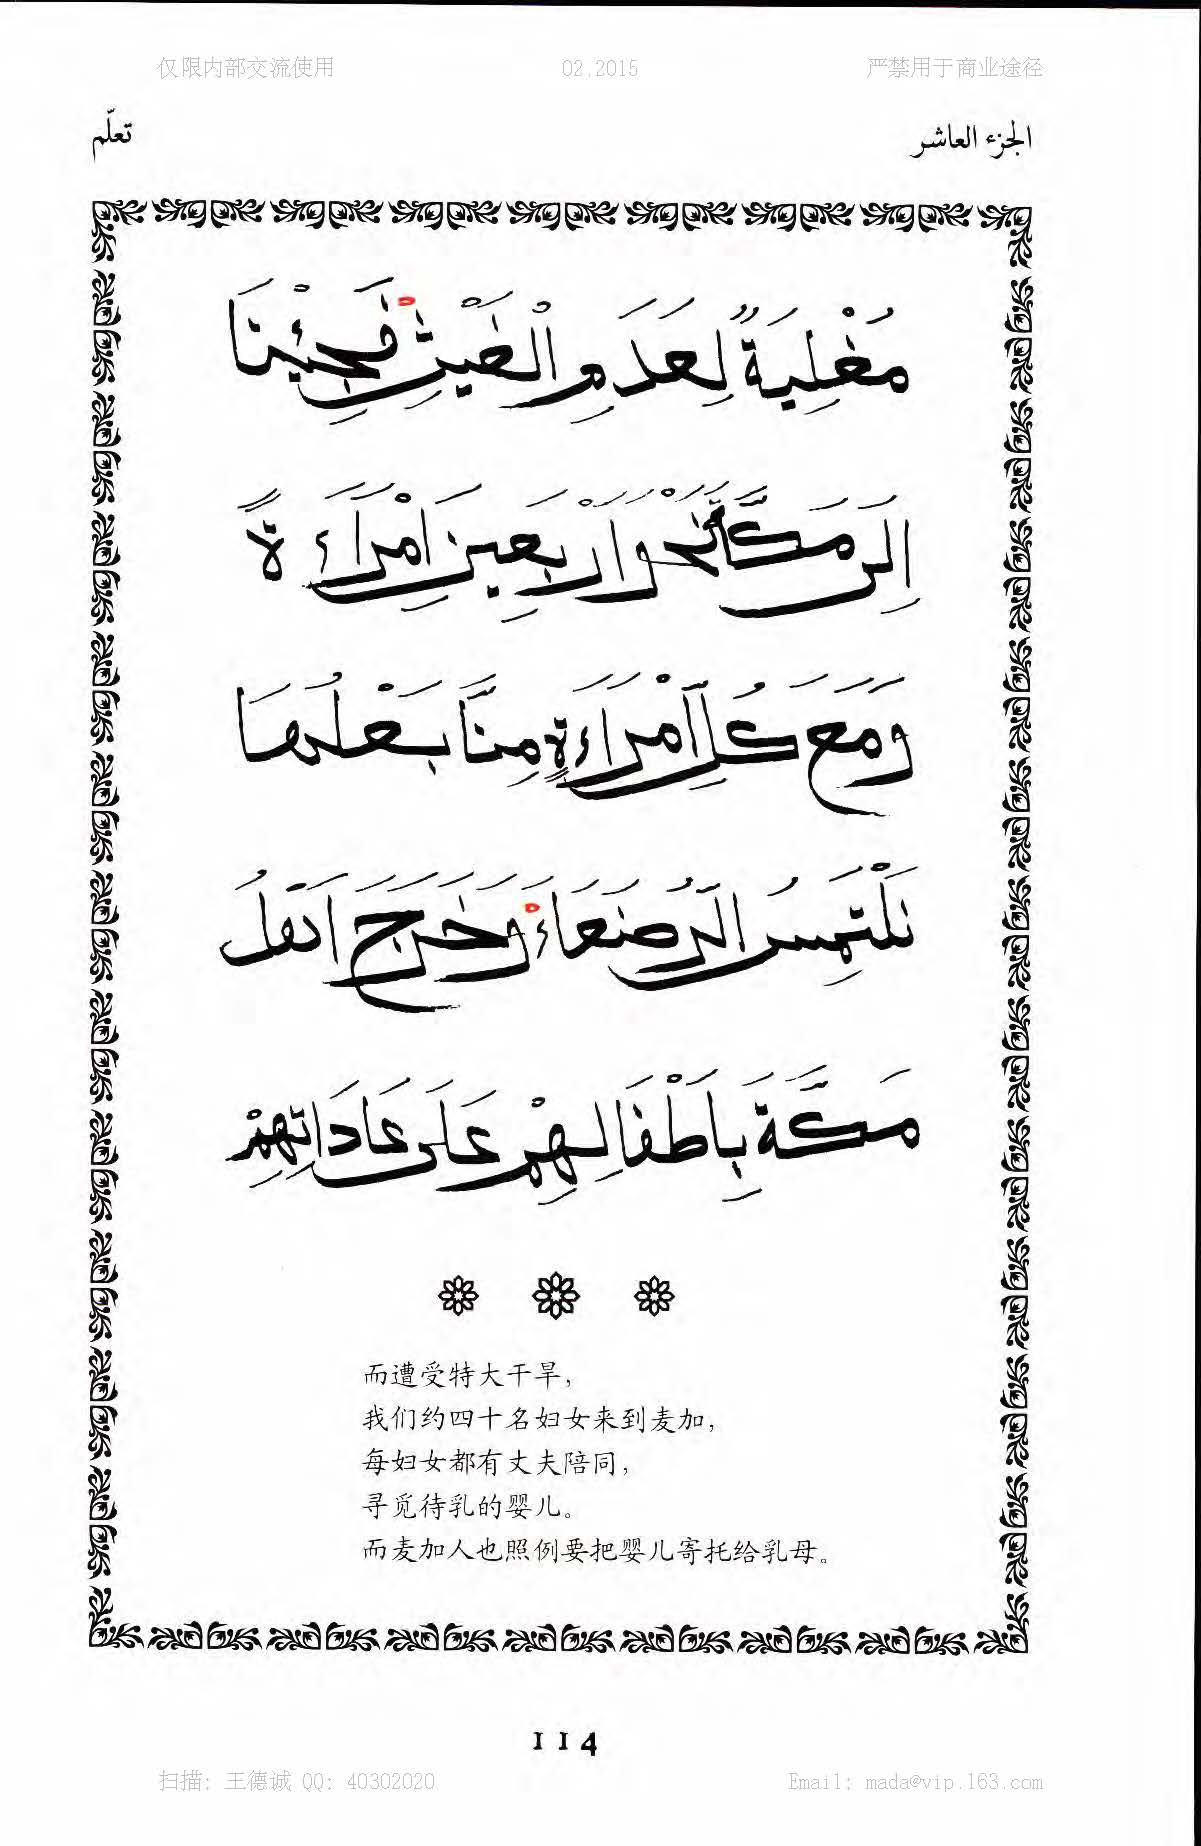 仅限内部交流使用 02.2015 严禁用于商业途径
الجزء العاشر تعلّم
مُغْلِيَةً لِعَدَمِ الْغَيْثِ فَجِئْنَا
إِلَى مَكَّةَ نَحْوَ اَرْبَعِينَ اِمْرَاَءَةً
وَمَعَ كُلِّ امْرَاَءَةٍ مِنَّا بَعْلُهَا
نَلْتَمِسُ الرُّضَعَاءَ وَخَرَجَ اَهْلُ
مَكَّةَ بِاَطْفَالِهِمْ عَلَى عَادَاتِهِمْ
而遭受特大干旱，
我们约四十名妇女来到麦加，
每妇女都有丈夫陪同，
寻觅待乳的婴儿。
而麦加人也照例要把婴儿寄托给乳母。
114
扫描: 王德诚 QQ: 40302020 Email: mada@vip.163.com